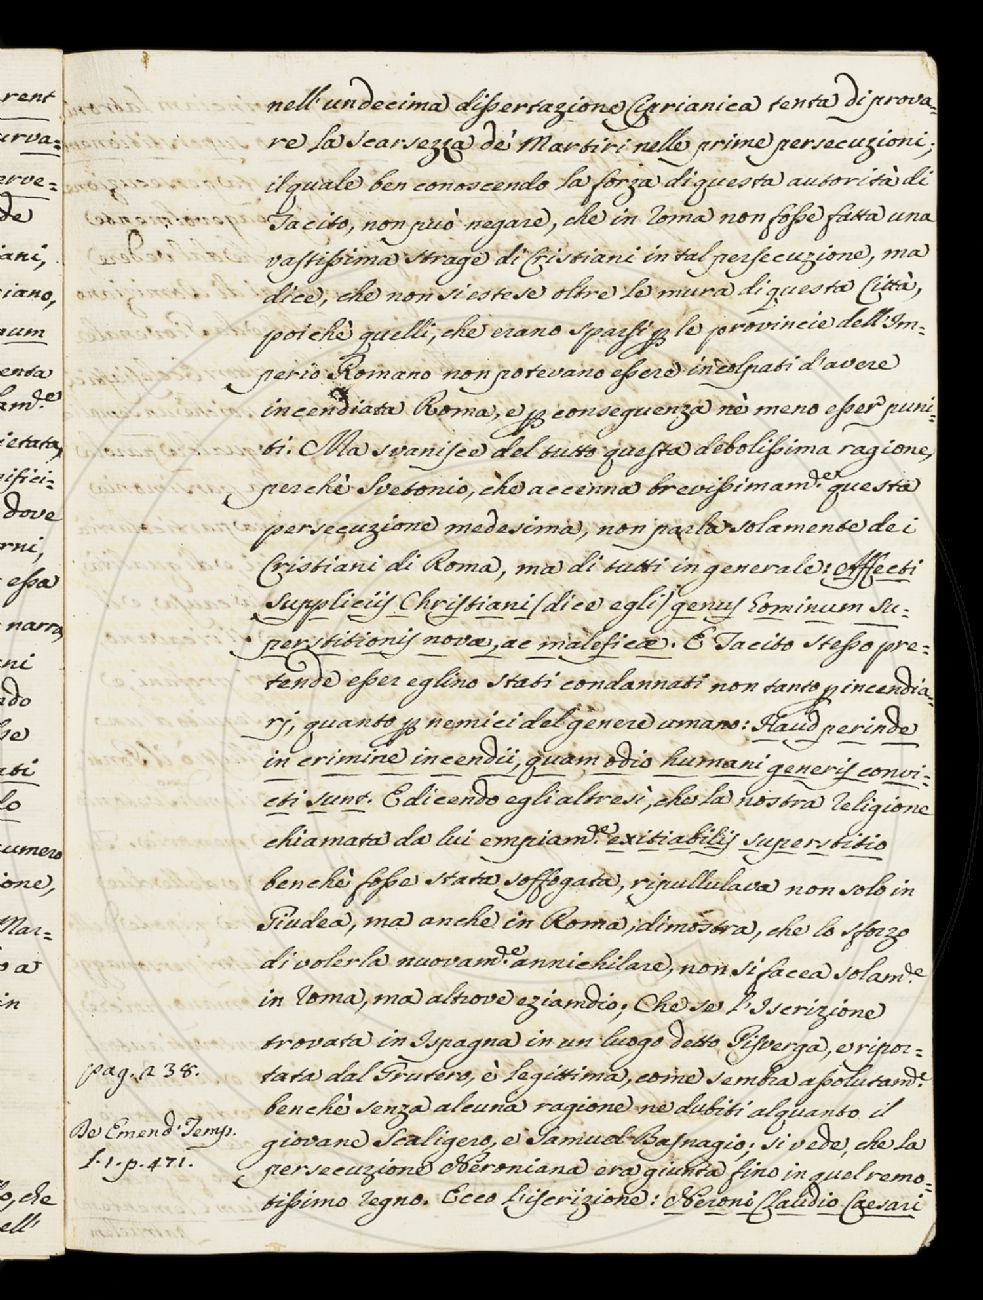 nell'undecima dissertazione Ciprianica tenta di prova-
re la scarsezza de' Martiri nelle prime persecuzioni;
il quale ben conoscendo la forza di questa autorità di
Tacito, non può negare, che in Roma non fosse fatta una
vastissima strage di Cristiani in tal persecuzione, ma
dice, che non si estese oltre le mura di questa Città,
poichè quelli, che erano sparsi p le provincie dell'Im-
perio Romano non potevano essere incolpati d'avere
incendiata Roma, e p conseguenza nè meno esser puni-
ti. Ma svanisce del tutto questa debolissima ragione,
perchè Svetonio, che accenna brevissimam.e questa
persecuzione medesima, non parla solamente dei
Cristiani di Roma, ma di tutti in generale: Affecti
suppliciis Christiani (dice egli) genus hominum su-
perstitionis novæ, ac maleficæ. E Tacito stesso pre-
tende esser eglino stati condannati non tanto p incendia-
rj, quanto p nemici del genere umano: Haud perinde
in crimine incendii, quam odio humani generis convi-
cti sunt. E dicendo egli altresì, che la nostra Religione
chiamata da lui empiam.te exitiabilis superstitio
benchè fosse stata soffogata, ripullulava non solo in
Giudea, ma anche in Roma, dimostra, che lo sforzo
di volerla nuovam.te annichilare, non si facea solam.te
in Roma, ma altrove eziamdio; Che se l'Iscrizione
trovata in Ispagna in un luogo detto Pisverga, e ripor-
tata dal Grutero, è legittima, come sembra assolutam.e
benchè senza alcuna ragione ne dubiti alquanto il
giovane Scaligero, e Samuel Basnagio; si vede, che la
persecuzione Neroniana era giunta fino in quel remo-
tissimo regno. Ecco l'iscrizione: Neroni Claudio Caesari
pag. 238.
De Emend. Temp.
l. 1. p. 471.
rent
urva=
erve=
de
iani,
ciano,
num
enta
lam.te
ietata,
nifici-
dove
rni,
essa
narra,
ni
ndo
se
ati
lo
numero
ione,
Mar=
o a
in
o, che
ell'